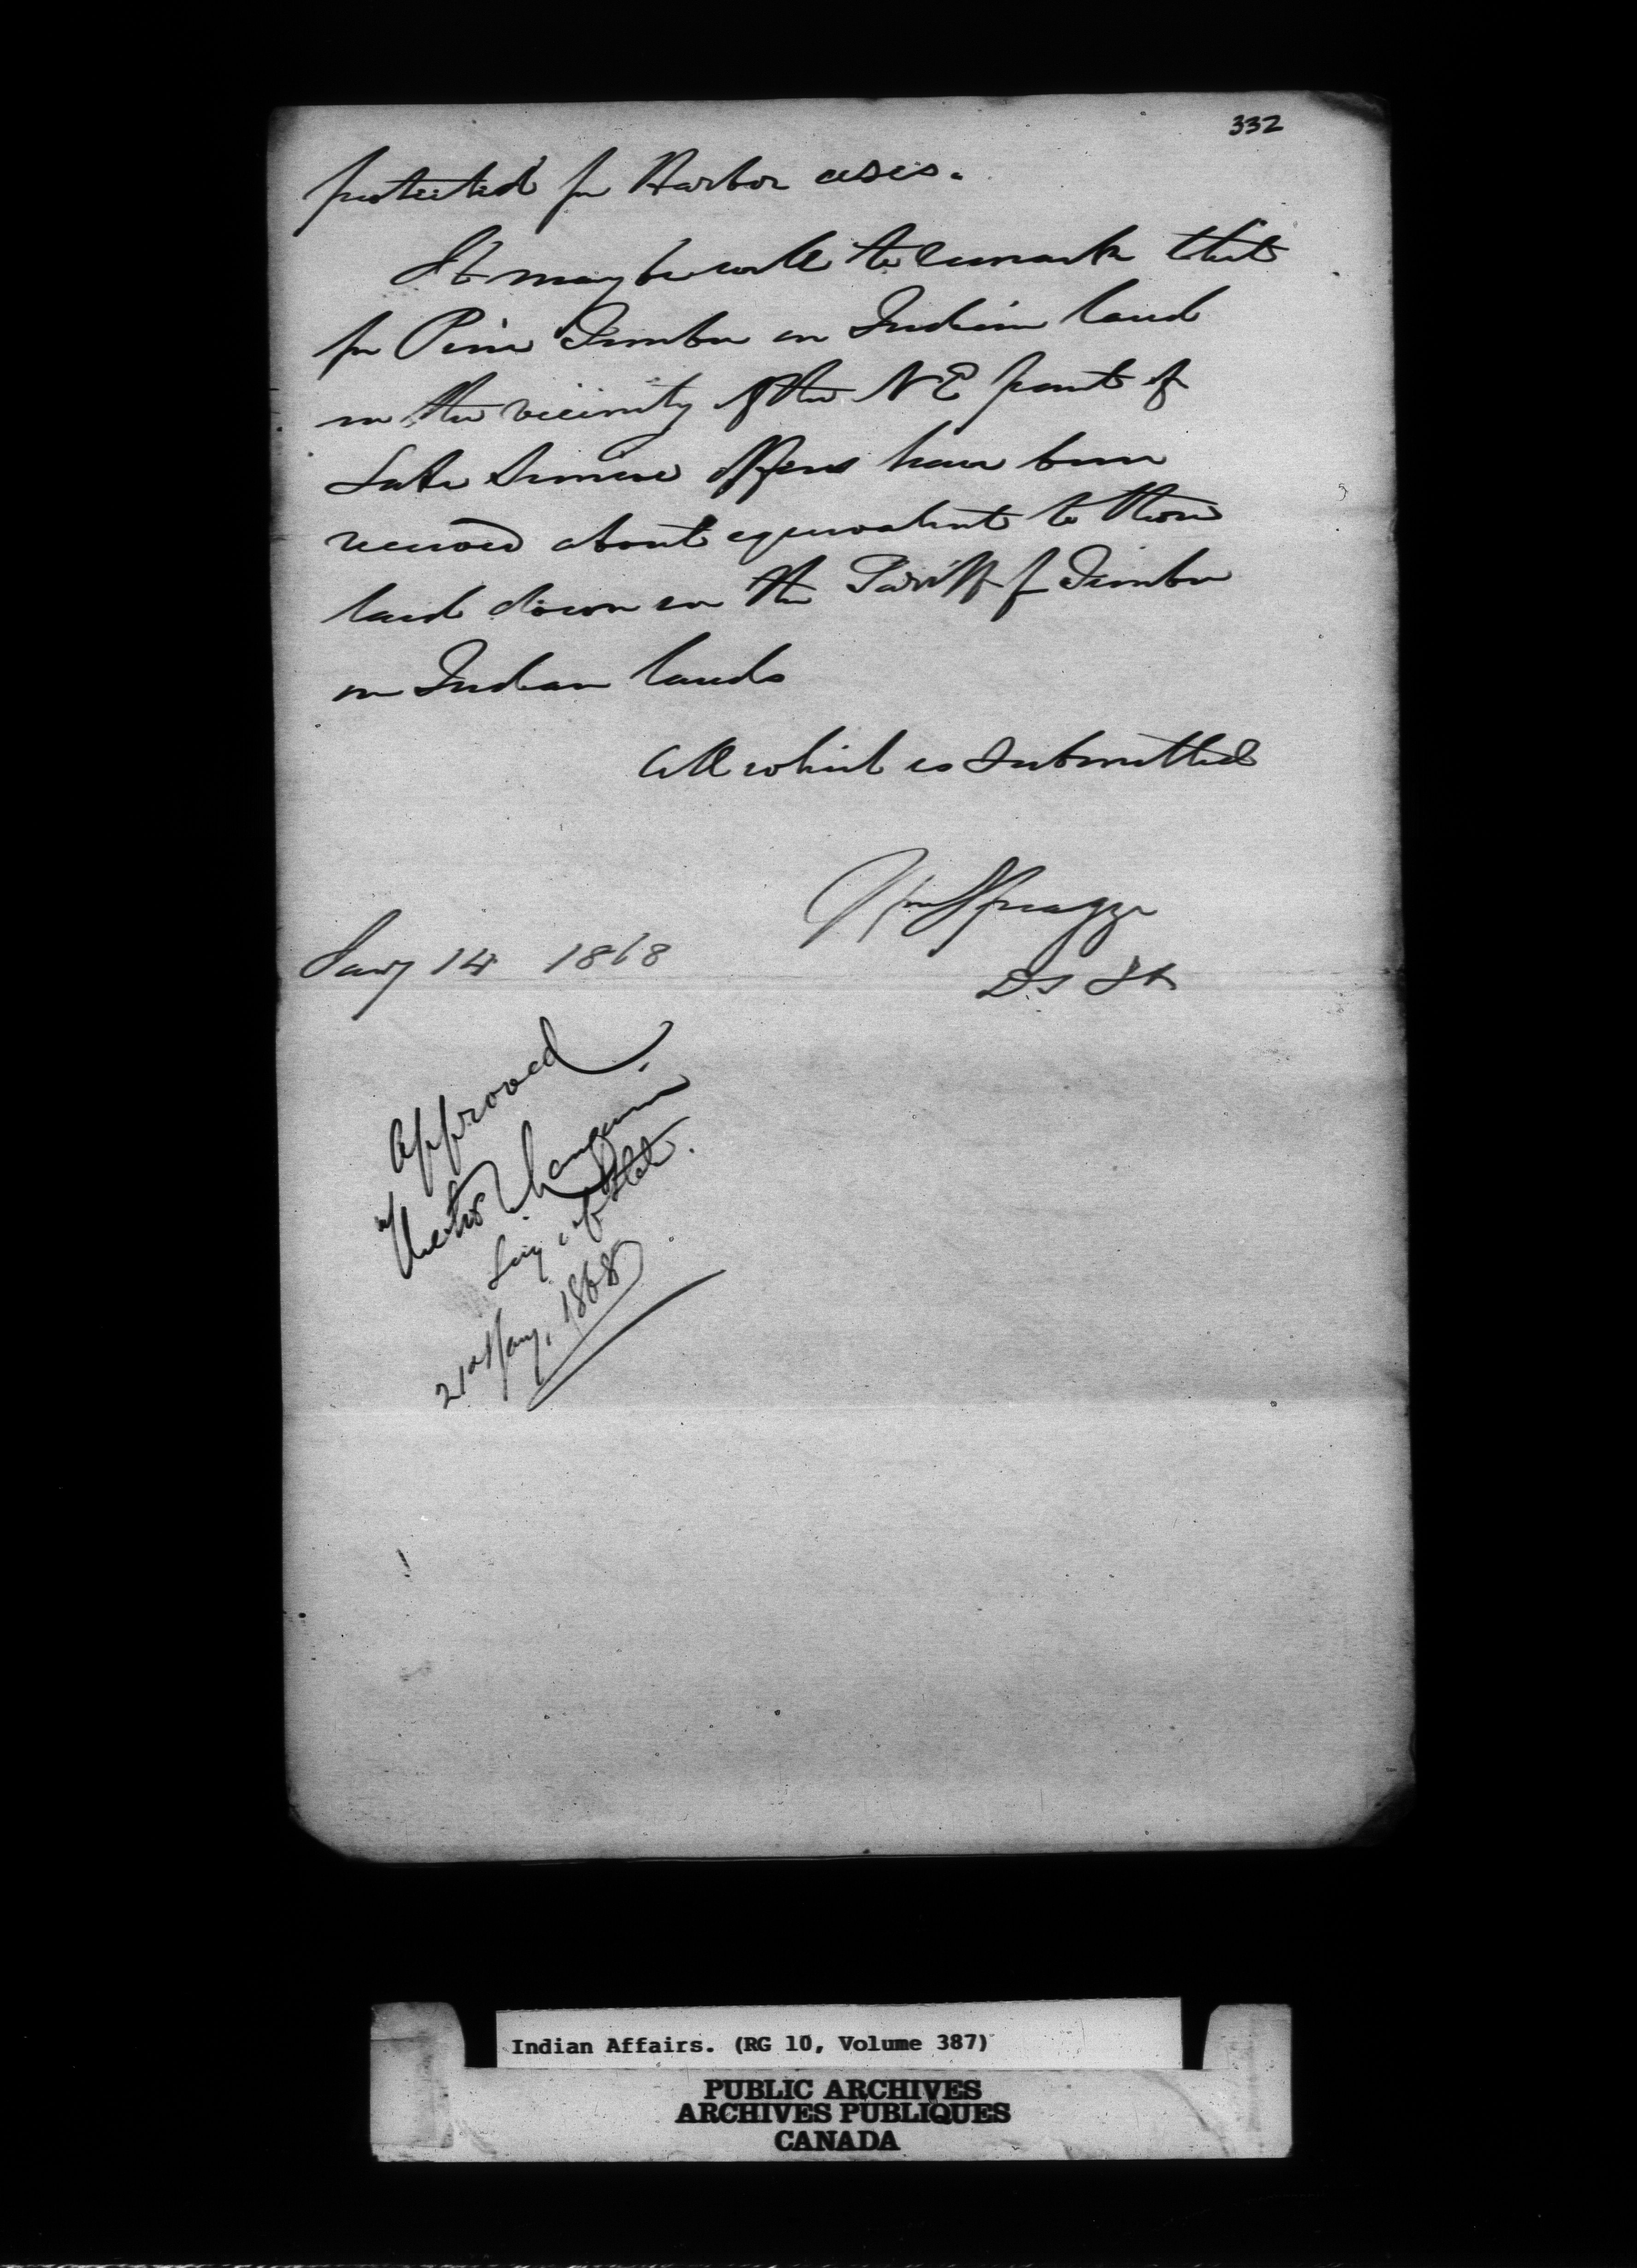 332
protected for Harbor uses.
It may be well to remark that
for Pine Timber on Indian land
in the vicinity of the NE part of
Lake Simcoe offers have been
received about equivalent to those
laid down in the Tariff for Timber
on Indian lands
All which is submitted
Wm Spragge
Jany 14 1868
D S
Approved
Hector Langevin
Secy. of State.
21st Jany, 1868
Indian Affairs. (RG 10, Volume 387)
PUBLIC ARCHIVES
ARCHIVES PUBLIQUES
CANADA